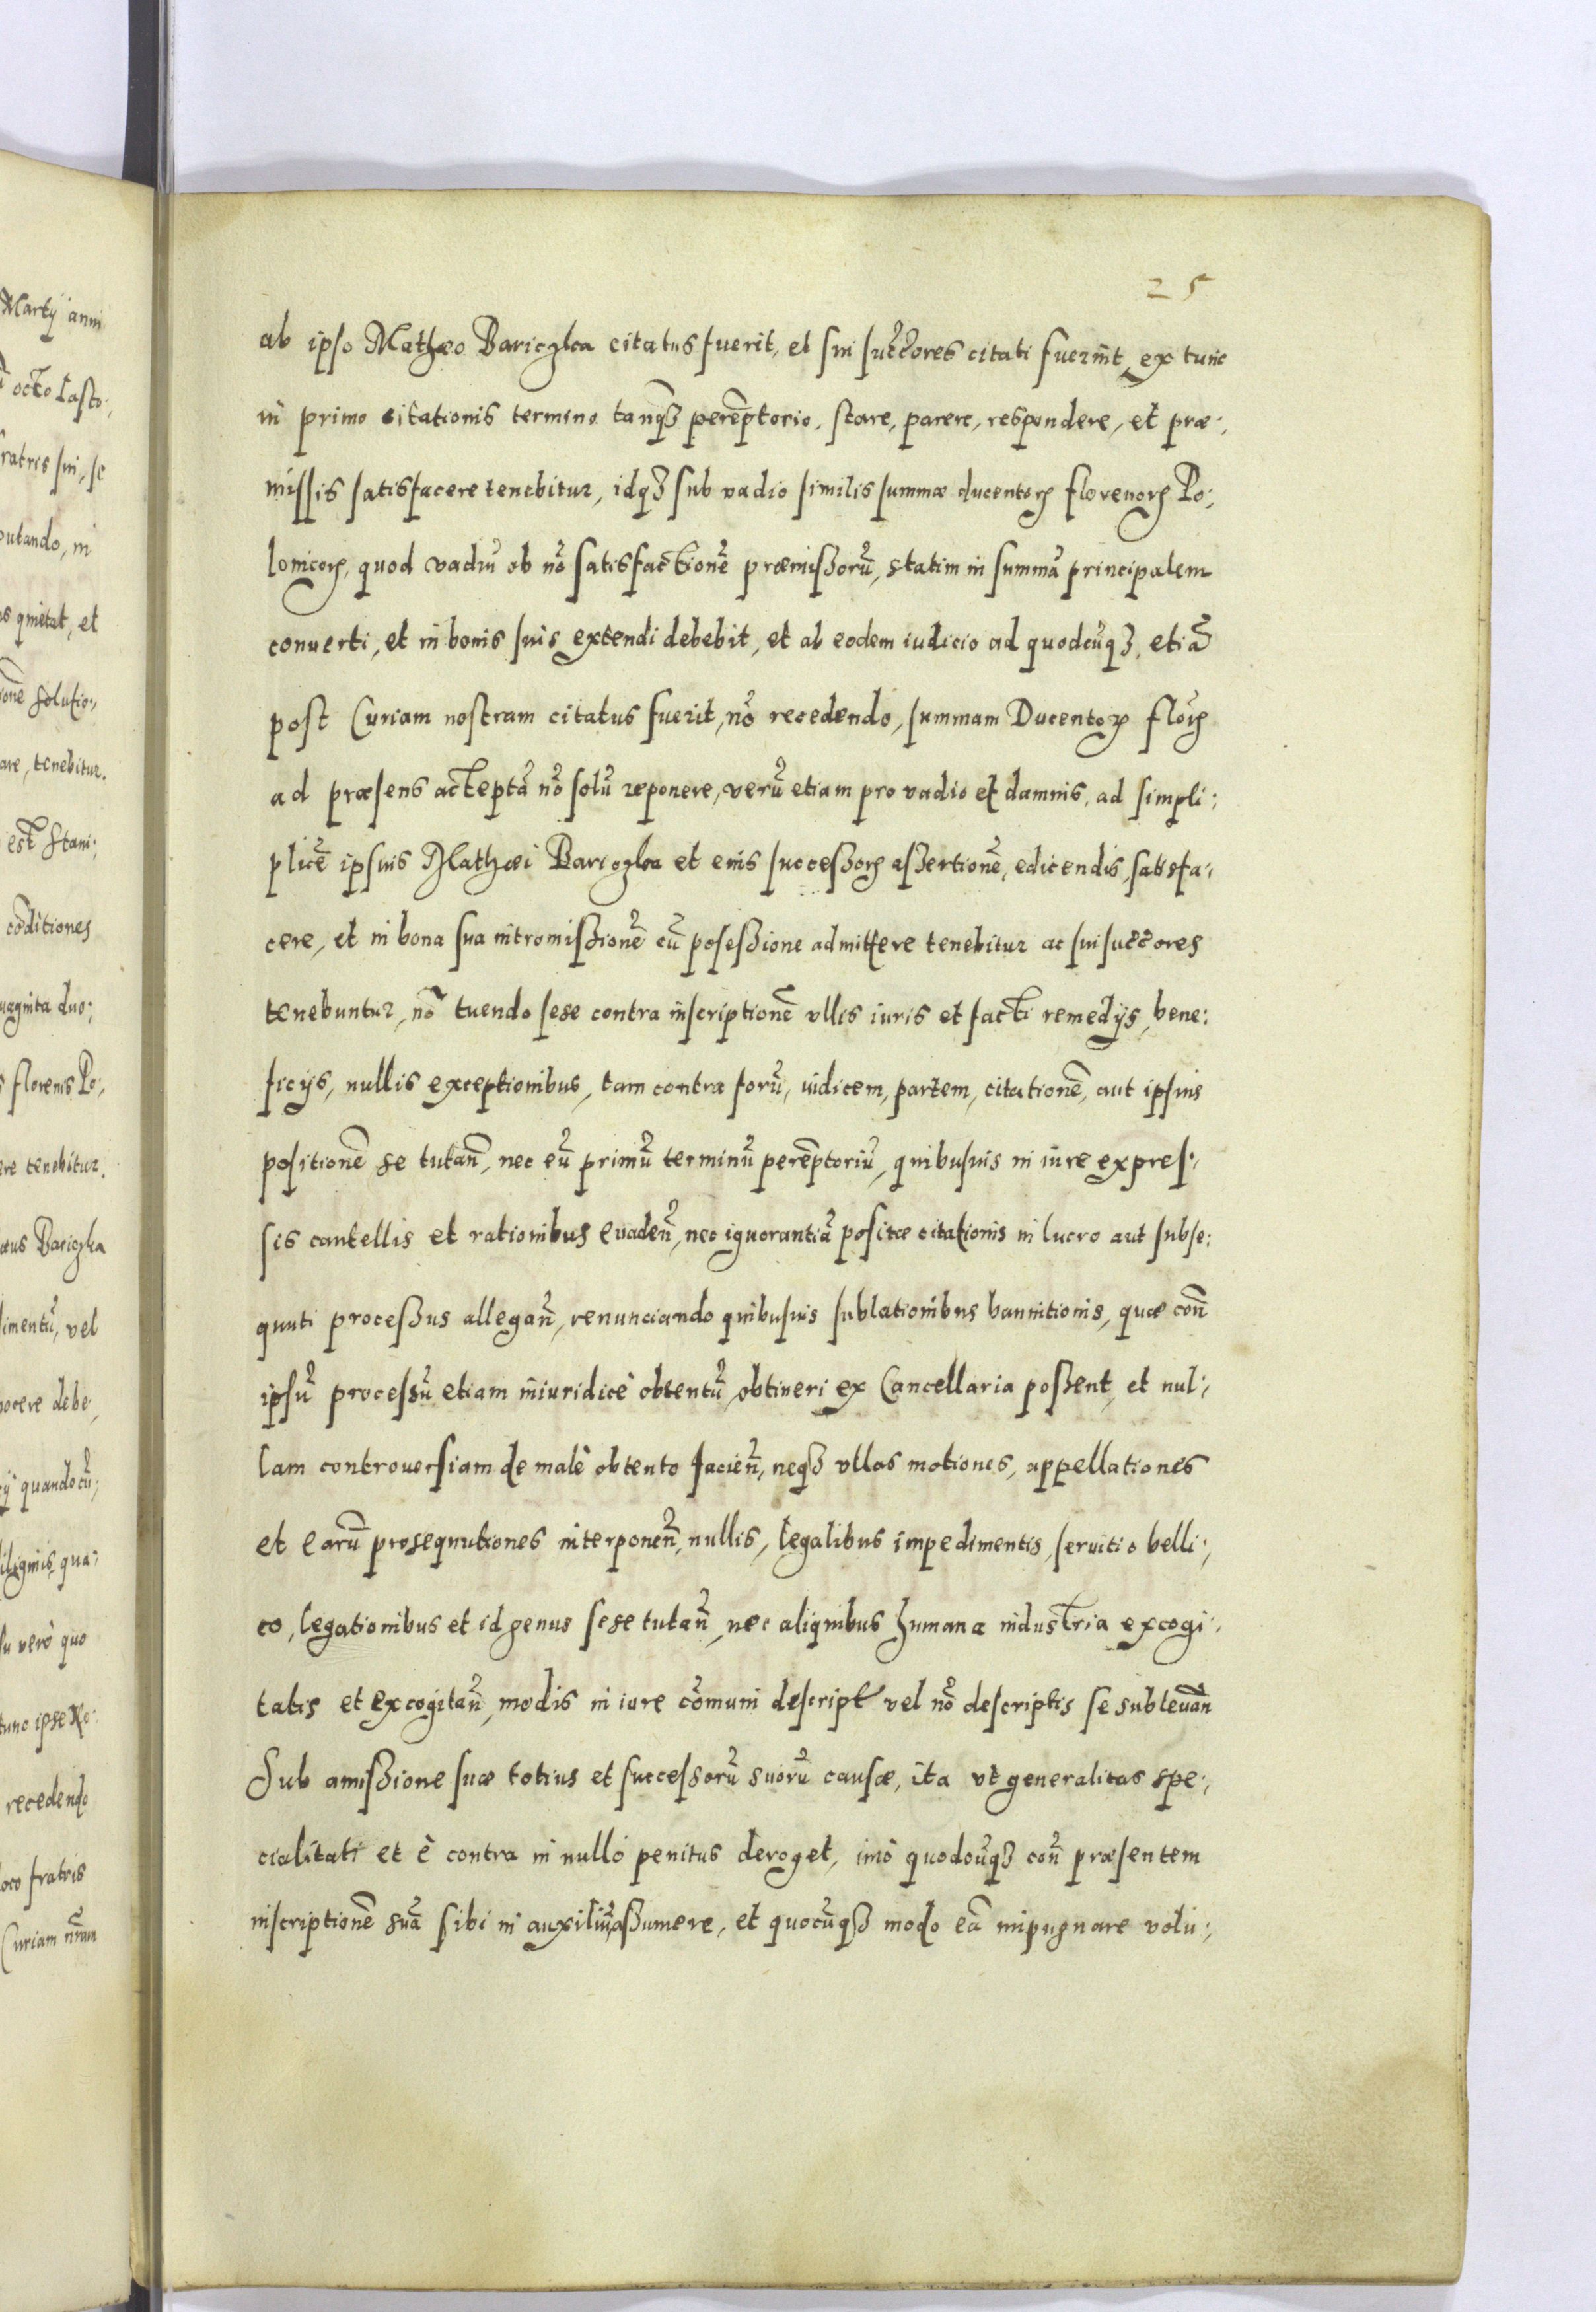 Martÿ anni
octo Lasto:,
fratris sui, se
putando, in
quietat, et
ionē solutio:,
are, tenebitur.
est Stani:,
cōditiones
quaginta duo:,
florenis Po:,
ere tenebitur.
Bariczka
dimentū, vel
nocere debe,
quandocū:,
qua:,
vero quo
tunc ipse
recedendo
loco fratris
Curiam nr̄am
25
ab ipso Mathæo Bariczka citatus fuerit, et sui succ̄ores citati fuerint, ex tunc
in primo citationis termino tanq̄ꝫ perēptorio, stare, parere, respondere, et præ:,
missis satisfacere tenebitur, idqꝫ sub vadio similis summæ ducentorꝫ florenorꝫ Po:,
lonicorꝫ, quod vadiū ob nō satisfactionē præmissorū, statim in summā principalem
conuerti, et in bonis suis extendi debebit, et ab eodem iudicio ad quodcūqꝫ, etiā
post Curiam nostram citatus fuerit, nō recedendo, summam Ducentorꝫ flōrꝫ
ad præsens acceptā nō solū reponere, verū etiam pro vadio et damnis, ad simpli:,
plicē ipsius Mathæi Bariczka et eius successorꝫ assertionē, edicendis, satisfa:,
cere, et in bona sua intromissionē cū posessione admittere tenebitur ac sui succ̄ores
tenebuntur, nō tuendo sese contra inscriptionē vllis iuris et facti remedÿs, bene:
ficÿs, nullis exceptionibus, tam contra forū, iudicem, partem, citationē, aut ipsius
positionē se tutan̄, nec eū primū terminū perēptoriū, quibusuis in iure expres:,
sis cautellis et rationibus euaden̄, nec ignorantiā positæ citationis in lucro aut subse:
quuti processus allegan̄, renunciando quibusuis sublationibus bannitionis, quæ con̄
ipsū processū etiam iniuridicè obtentū, obtineri ex Cancellaria possent, et nul:,
lam controuersiam de malè obtento facien̄, neqꝫ vllas motiones, appellationes
et earū prosequutiones interponen̄, nullis, legalibus impedimentis, seruitio belli:,
co, legationibus et id genus sese tutan̄, nec aliquibus humana industria excogi:,
tatis et excogitan̄, modis in iure cōmuni descript vel nō descriptis se subleuan̄
Sub amissione suæ totius et successorū suorū causæ, ita vt generalitas spe:,
cialitati et è contra in nullo penitus deroget, imò quodcūqꝫ con̄ præsentem
inscriptionē suā sibi in auxiliū assumere, et quocūqꝫ modo eā impugnare volu:,